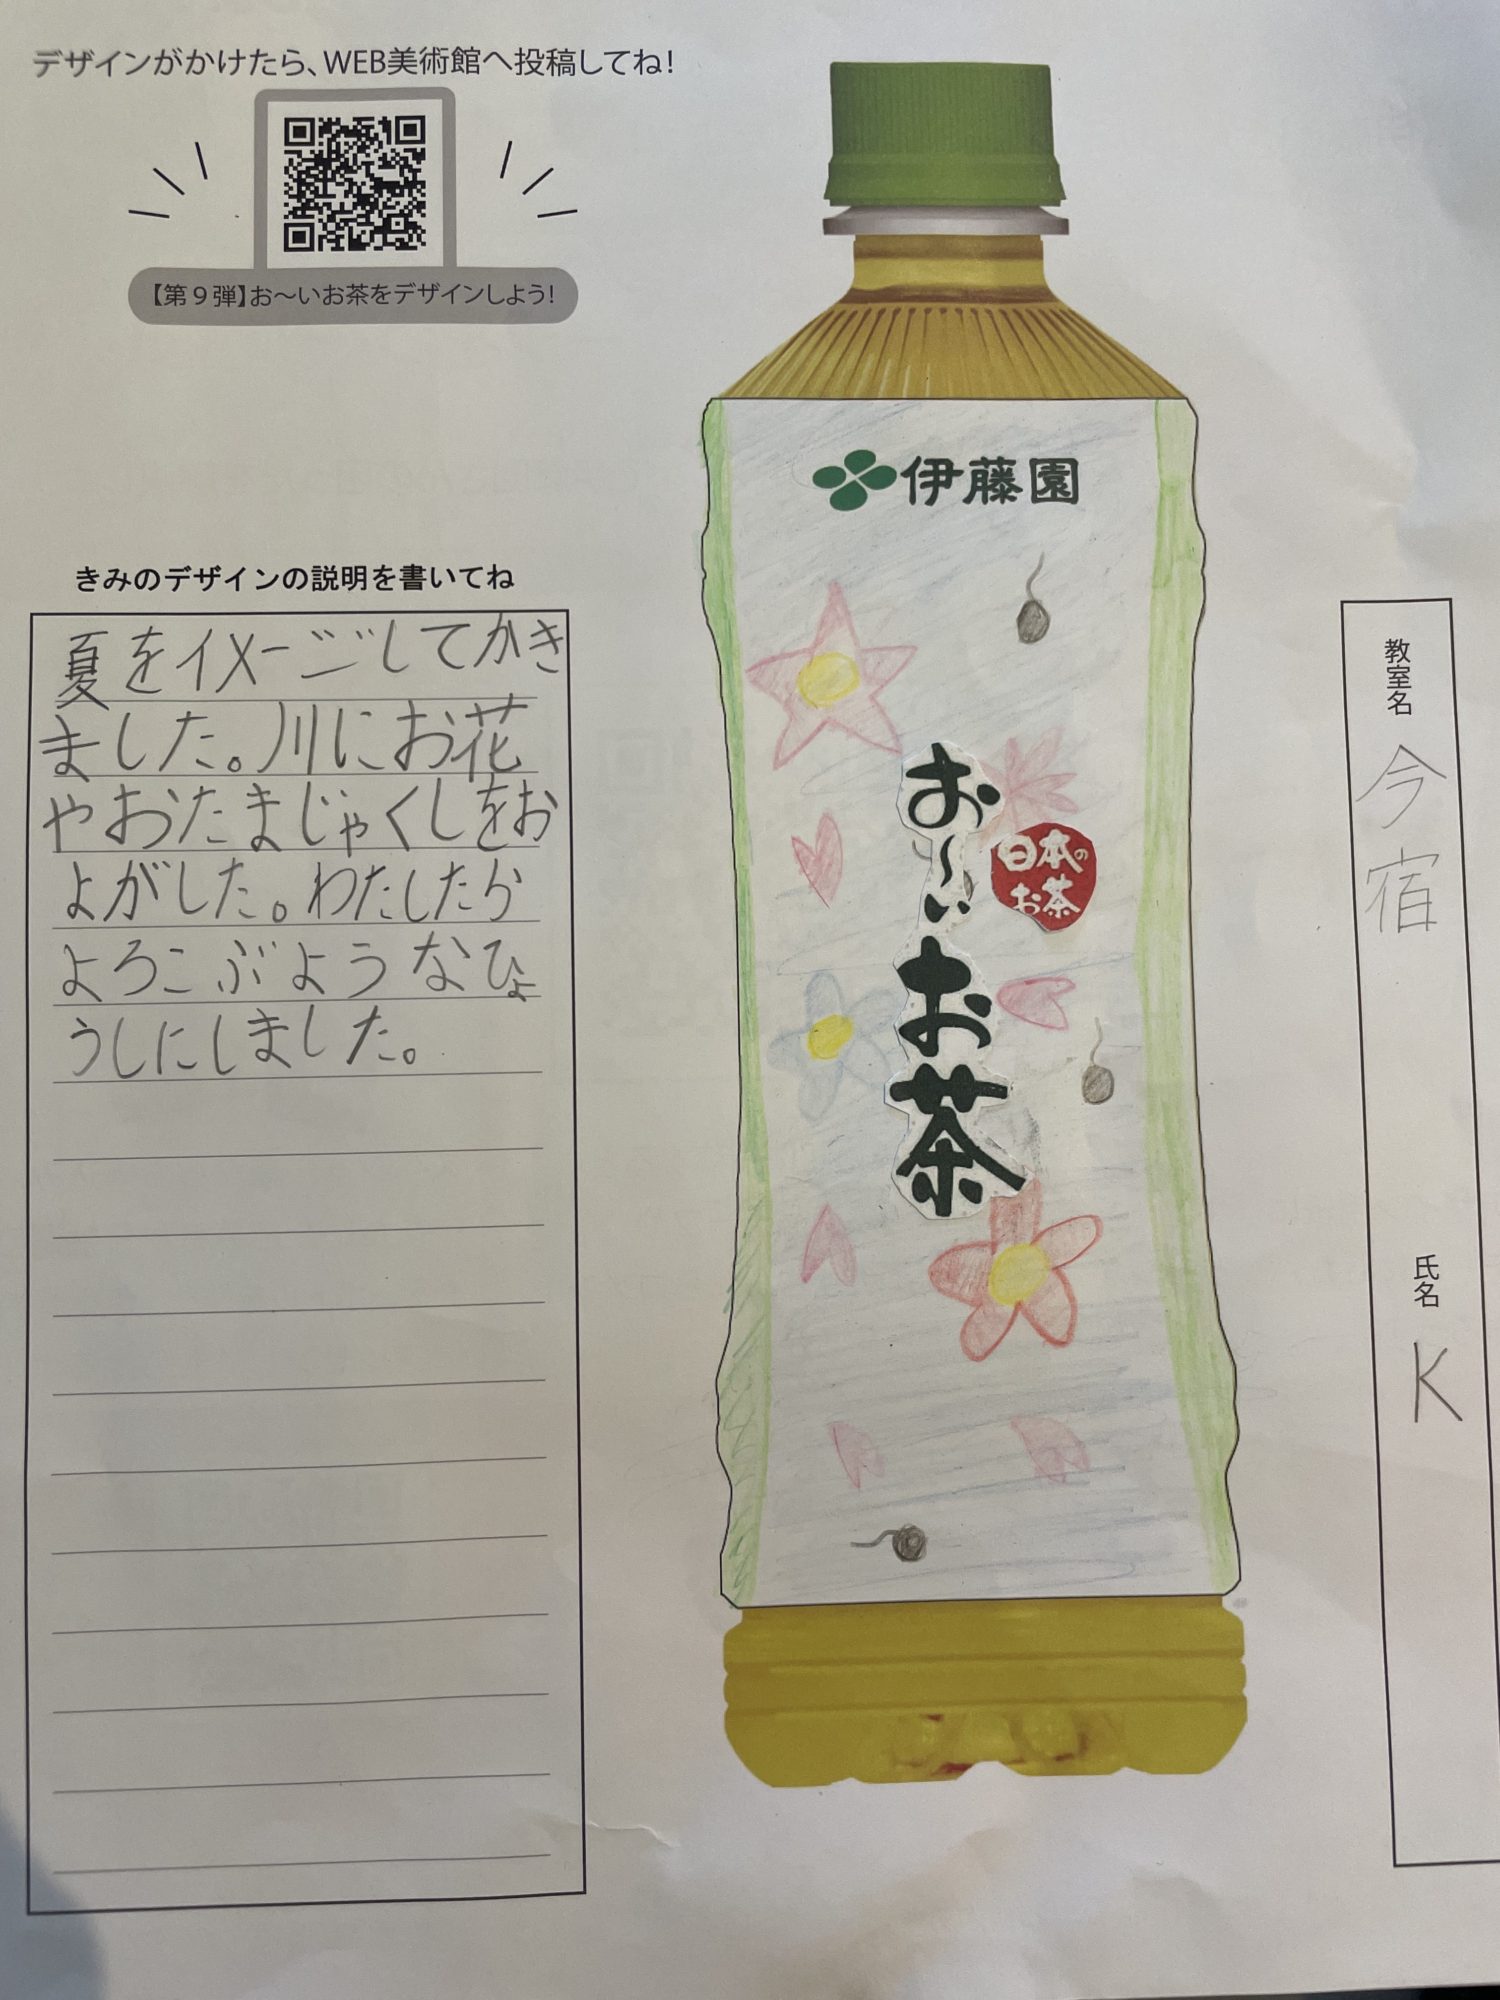 デザインがかけたら、WEB美術館へ投稿してね！
【第９弾】お～いお茶をデザインしよう！
きみのデザインの説明を書いてね
夏をイメージしてかき
ました。川にお花
やおたまじゃくしをお
よがした。わたしたら
よろこぶようなひょ
うしにしました。
伊藤園
お～い
お茶
日本の
お茶
教室名
今宿
氏名
K